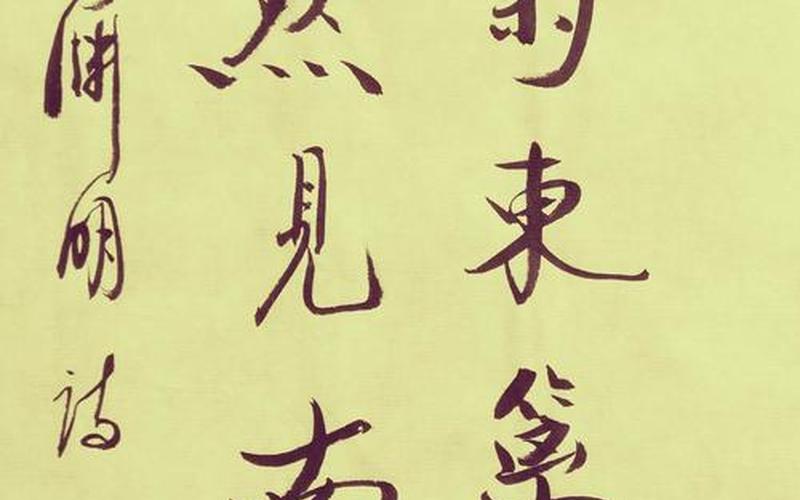 菊東篱
然見南
淵明詩